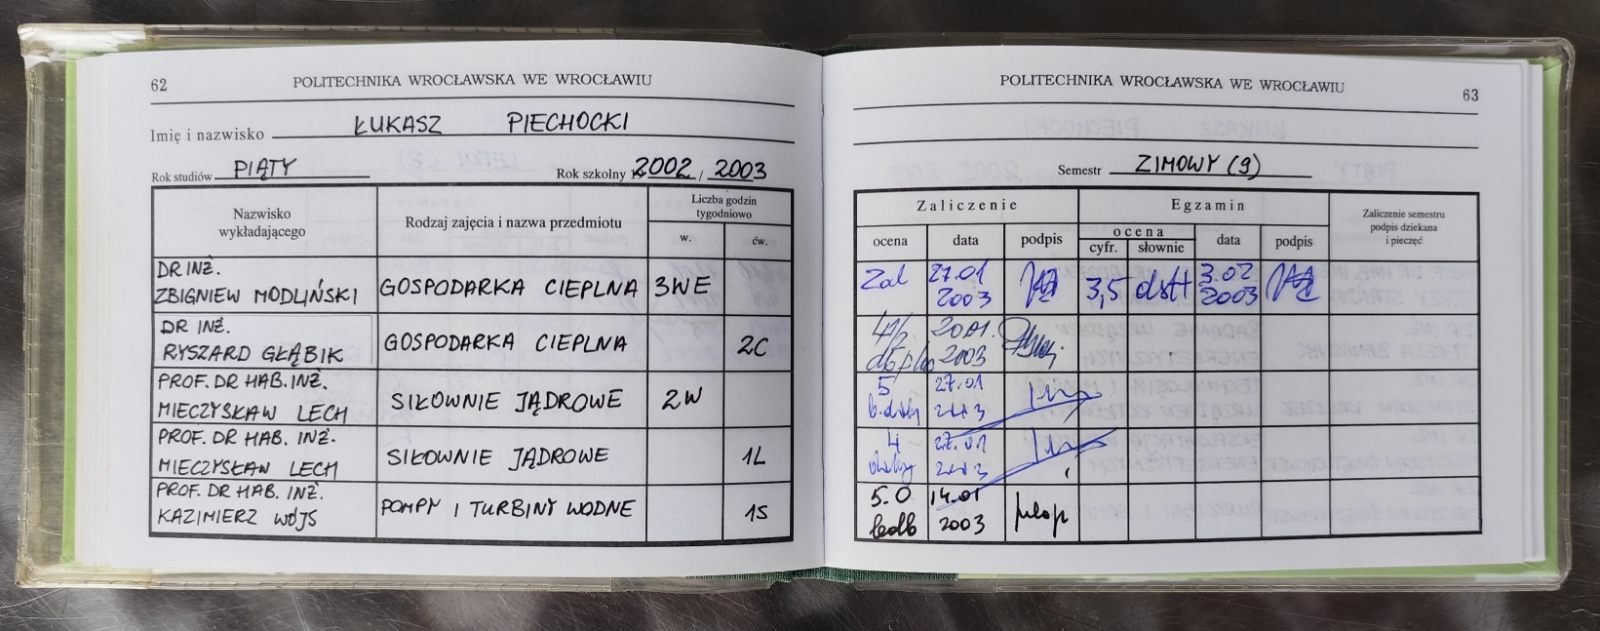 62
POLITECHNIKA WROCŁAWSKA WE WROCŁAWIU
Imię i nazwisko ŁUKASZ PIECHOCKI
Rok studiów PIĄTY Rok szkolny 2002 / 2003
Nazwisko wykładającego
Rodzaj zajęcia i nazwa przedmiotu
Liczba godzin tygodniowo
w. ćw.
DR INŻ.
ZBIGNIEW MODLIŃSKI GOSPODARKA CIEPLNA 3WE
DR INŻ.
RYSZARD GŁĄBIK GOSPODARKA CIEPLNA 2C
PROF. DR HAB. INŻ.
MIECZYSŁAW LECH SIŁOWNIE JĄDROWE 2W
PROF. DR HAB. INŻ.
MIECZYSŁAW LECH SIŁOWNIE JĄDROWE 1L
PROF. DR HAB. INŻ.
KAZIMIERZ WÓJS POMPY I TURBINY WODNE 1S
POLITECHNIKA WROCŁAWSKA WE WROCŁAWIU
63
Semestr ZIMOWY (9)
Zaliczenie Egzamin
Zaliczenie semestru
podpis dziekana
i pieczęć
ocena data podpis ocena data podpis
cyfr. słownie
Zal 27.01 2003 3,5 dst+ 3.02 2003
20.01. 2003
5 27.01
4 27.01
5.0 14.01
bdb 2003